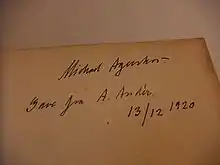 Michael Agustos
Gave fra A. Andér.
13/12 1920